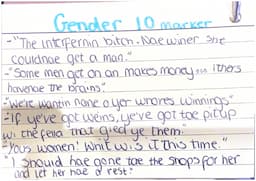 Gender 10 marker
- "The interferrin bitch. Nae winer she
couldnae get a man."
- "Some men get on an makes money... ithers
havenae the brains."
- "We're wantin nane o yer wrores winnings"
- "If ye've got weins, ye've got tae pit up
wi the fella that gied ye them."
"Yous women! Whit w.s it this time."
"I should hae gone tae the shops for her
and let her hae a rest."